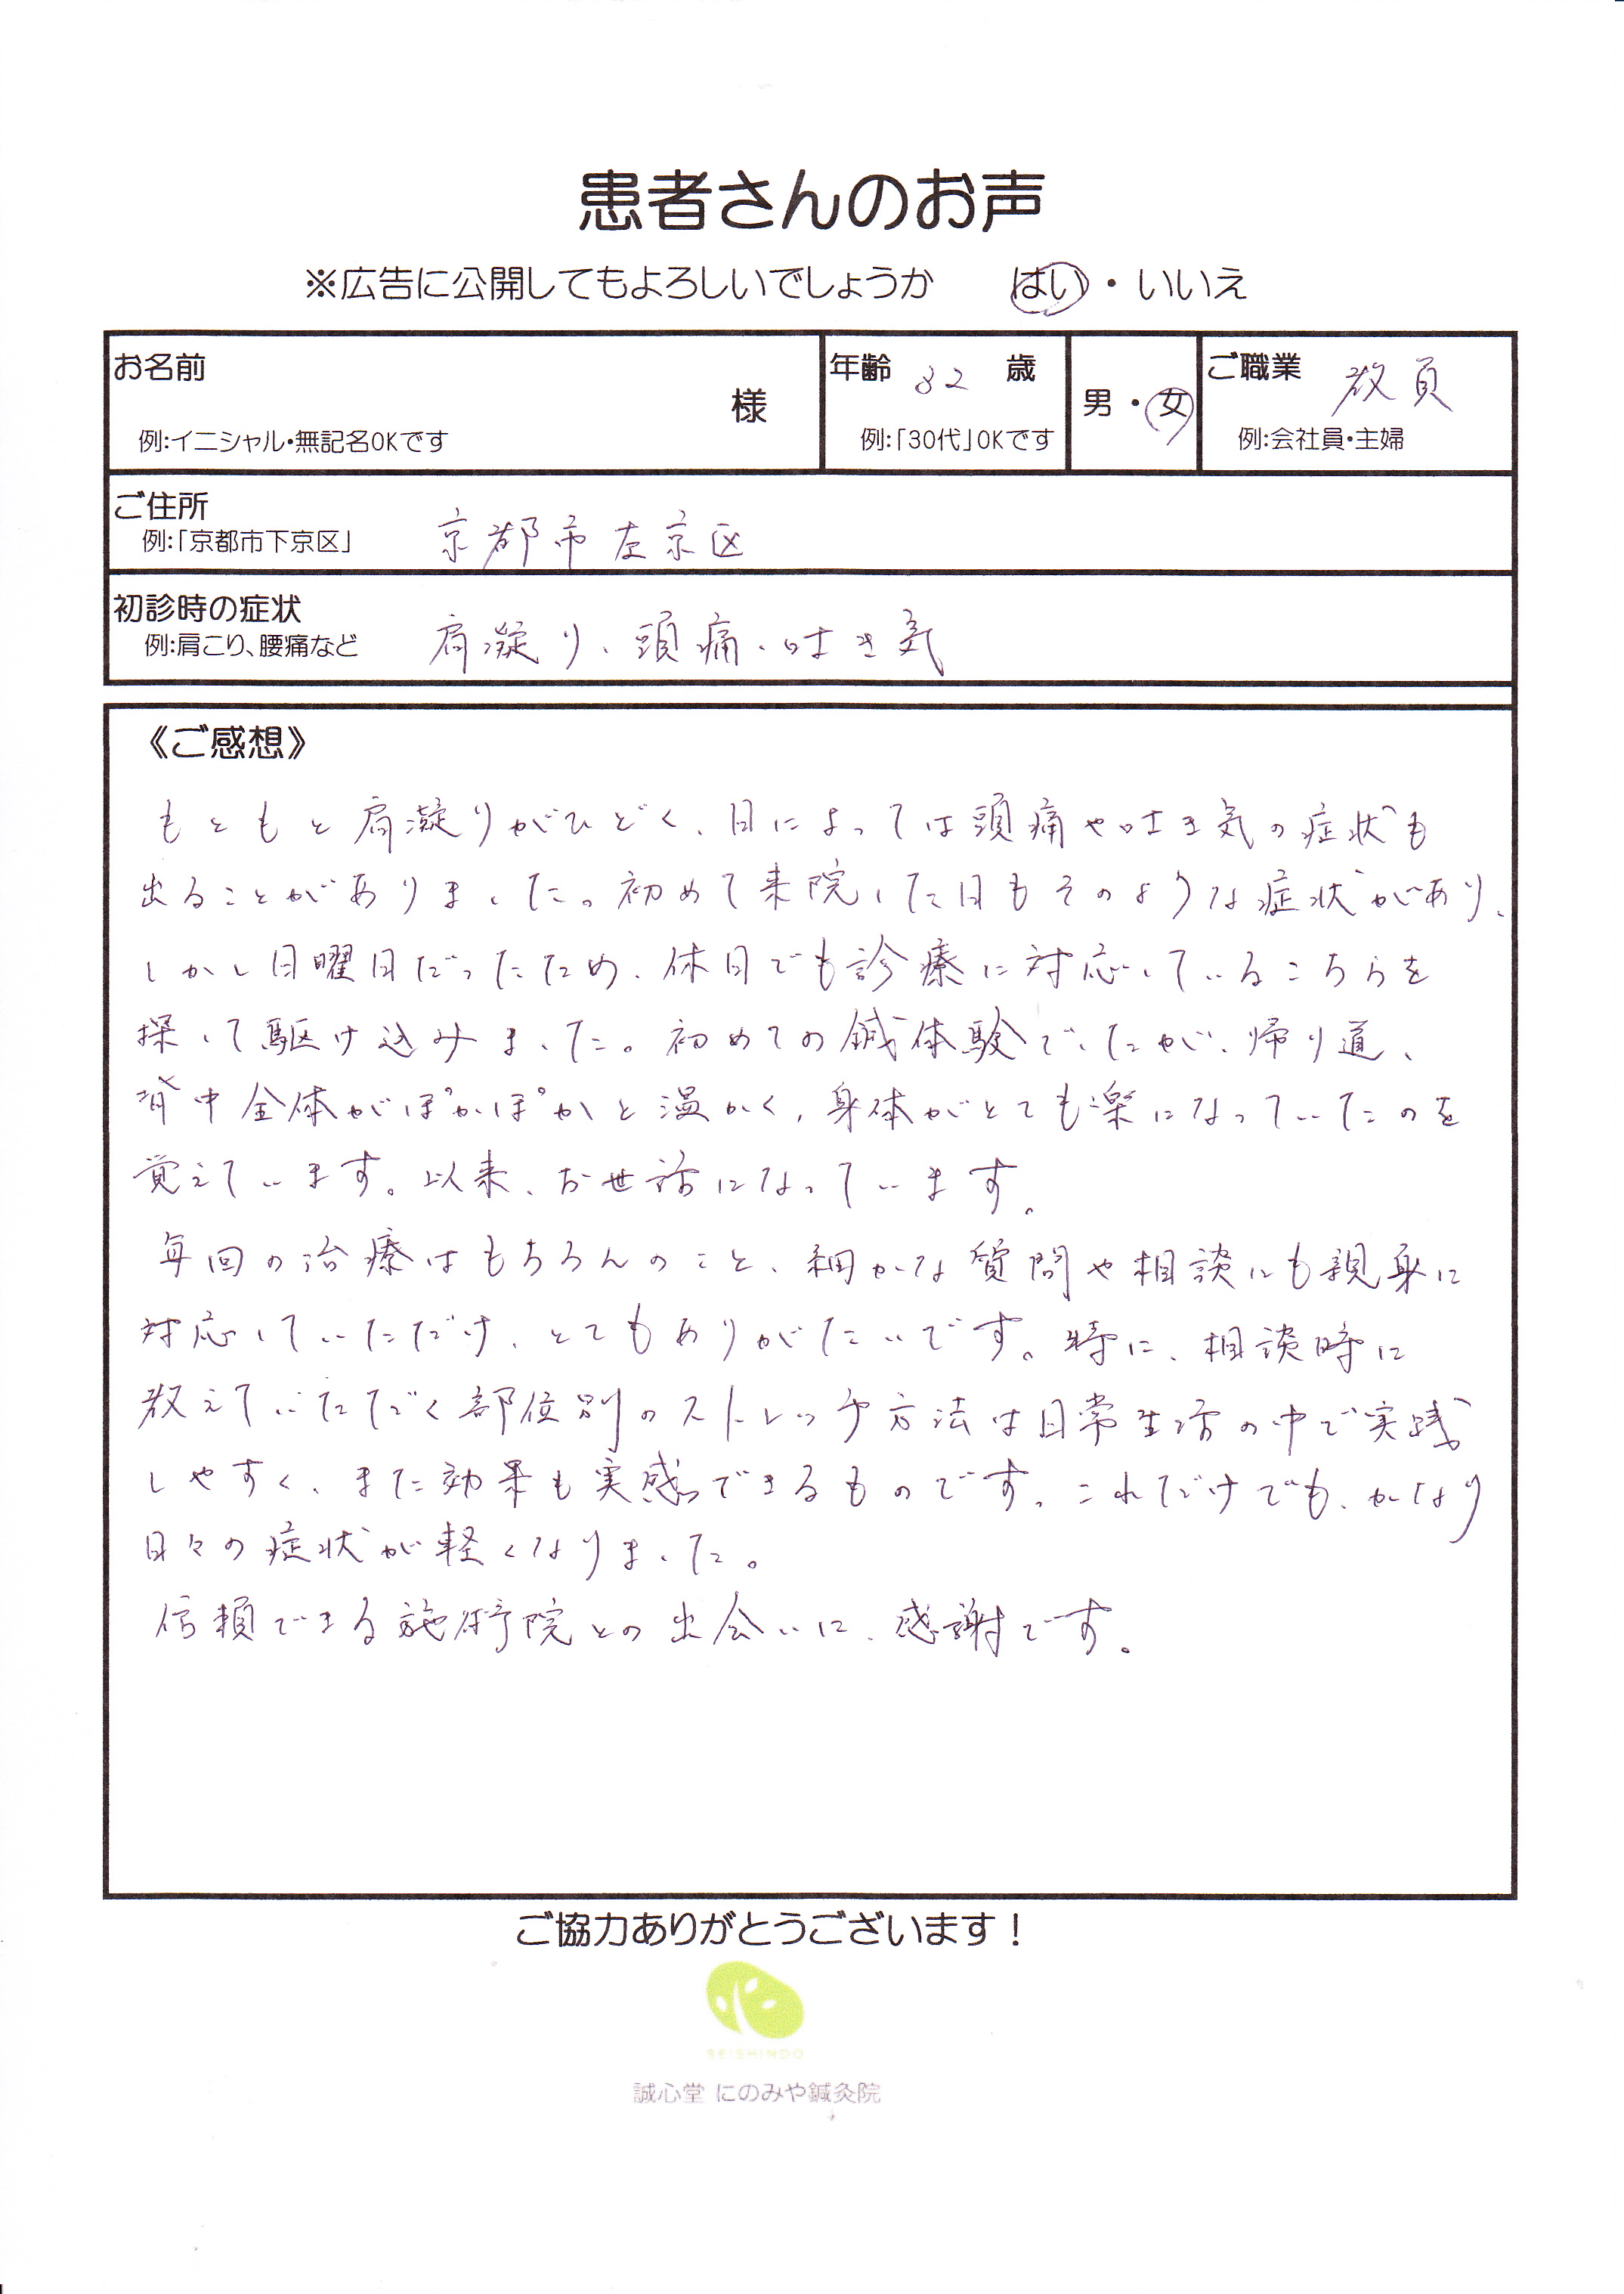 患者さんのお声
※広告に公開してもよろしいでしょうか　はい・いいえ
お名前　様
例:イニシャル・無記名OKです
年齢 32 歳
例:「30代」OKです
男・女
ご職業 教員
例:会社員・主婦
ご住所
例:「京都市下京区」 京都市左京区
初診時の症状
例:肩こり、腰痛など 肩凝り、頭痛、吐き気
《ご感想》
もともと肩凝りがひどく、日によっては頭痛や吐き気の症状も
出ることがありました。初めて来院した日もそのような症状があり、
しかし日曜日だったため、休日でも診療に対応しているこちらを
探して駆け込みました。初めての鍼体験でしたが、帰り道、
背中全体がぽかぽかと温かく、身体がとても楽になっていたのを
覚えています。以来、お世話になっています。
毎回の治療はもちろんのこと、細かな質問や相談にも親身に
対応していただけ、とてもありがたいです。特に、相談時に
教えていただく部位別のストレッチ方法は日常生活の中で実践
しやすく、また効果も実感できるものです。これだけでも、かなり
日々の症状が軽くなりました。
信頼できる施術院との出会いに、感謝です。
ご協力ありがとうございます！
SEISHINDO
誠心堂 にのみや鍼灸院